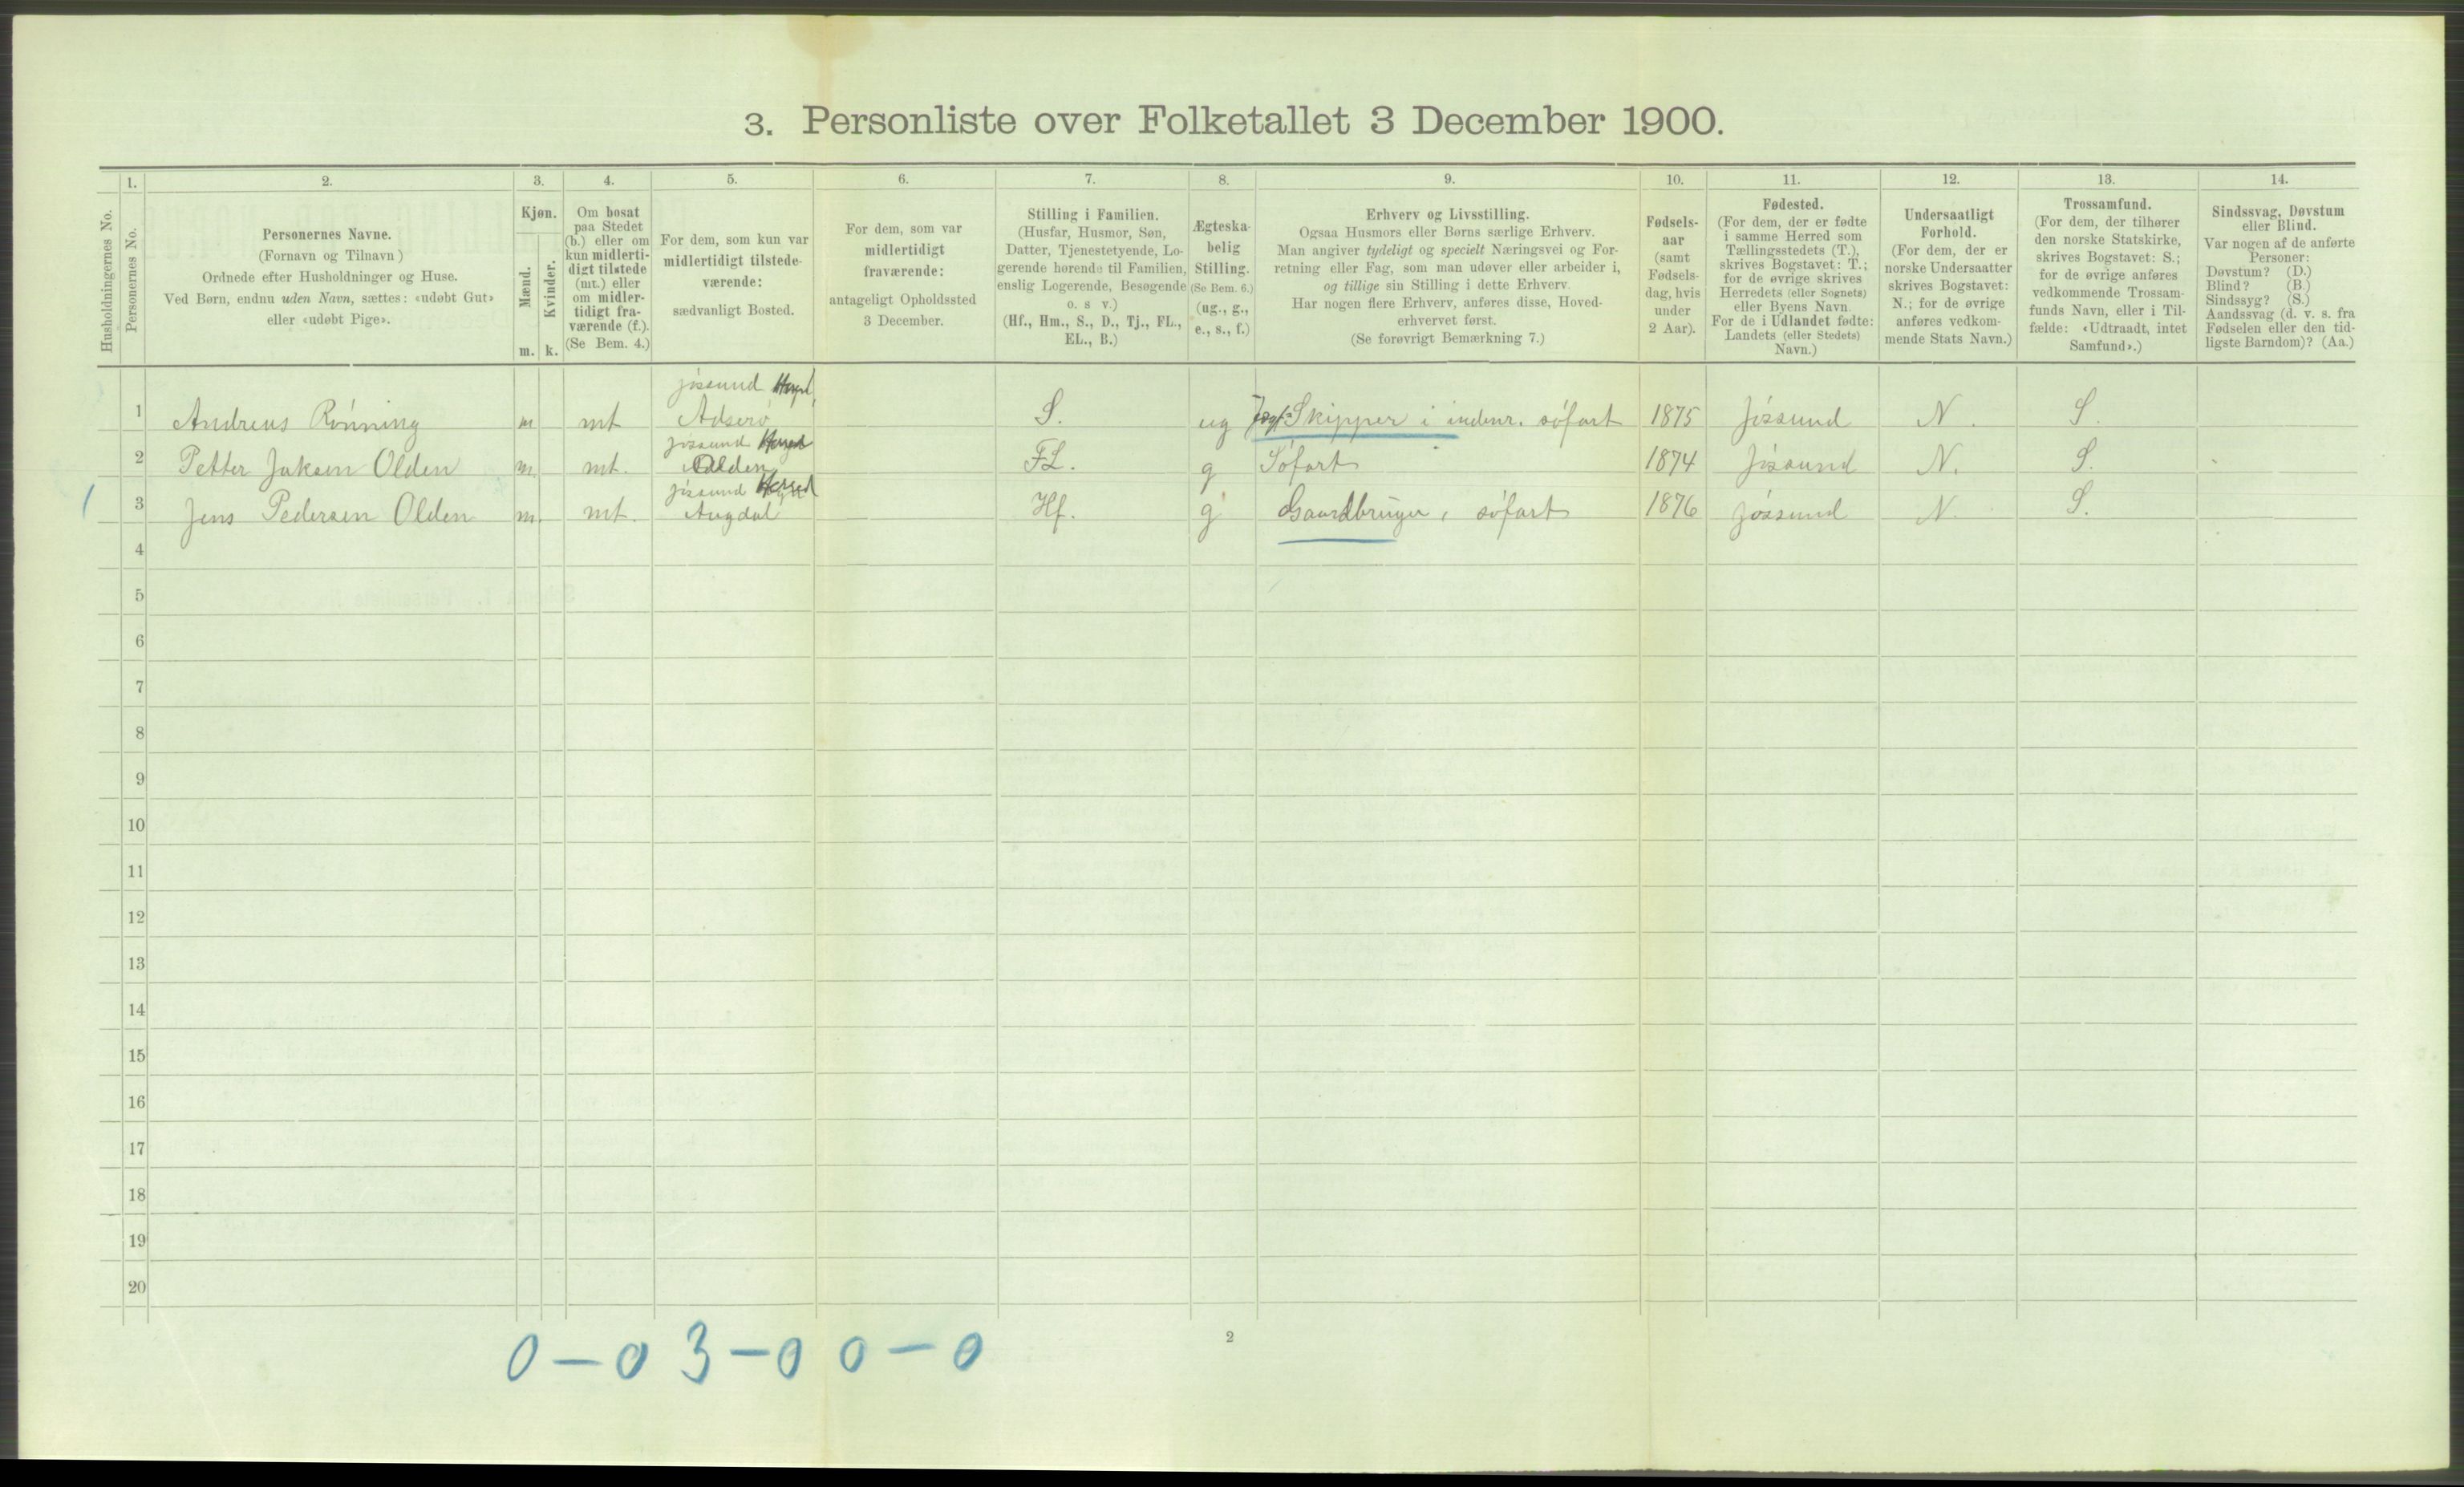 3. Personliste over Folketallet 3 December 1900.
1. 2. 3. 4. 5. 6. 7. 8. 9. 10. 11. 12. 13. 14.
Husholdningernes No.
Personernes No.
Personernes Navne.
(Fornavn og Tilnavn)
Ordnede efter Husholdninger og Huse.
Ved Børn, endnu uden Navn, sættes: «udøbt Gut»
eller «udøbt Pige».
Kjøn.
Mænd.
Kvinder.
m. k.
Om bosat
paa Stedet
(b.) eller om
kun midlerti-
digt tilstede
(mt.) eller
om midler-
tidigt fra-
værende (f.).
(Se Bem. 4.)
For dem, som kun var
midlertidigt tilstede-
værende:
sædvanligt Bosted.
For dem, som var
midlertidigt
fraværende:
antageligt Opholdssted
3 December.
Stilling i Familien.
(Husfar, Husmor, Søn,
Datter, Tjenestetyende, Lo-
gerende hørende til Familien,
enslig Logerende, Besøgende
o. s v.)
(Hf., Hm., S., D., Tj., FL.,
EL., B.)
Ægteska-
belig
Stilling.
(Se Bem. 6.)
(ug., g.,
e., s., f.)
Erhverv og Livsstilling.
Ogsaa Husmors eller Børns særlige Erhverv.
Man angiver tydeligt og specielt Næringsvei og For-
retning eller Fag, som man udøver eller arbeider i,
og tillige sin Stilling i dette Erhverv.
Har nogen flere Erhverv, anføres disse, Hoved-
erhvervet først.
(Se forøvrigt Bemærkning 7.)
Fødsels-
aar
(samt
Fødsels-
dag, hvis
under
2 Aar).
Fødested.
(For dem, der er fødte
i samme Herred som
Tællingsstedets (T.),
skrives Bogstavet: T.;
for de øvrige skrives
Herredets (eller Sognets)
eller Byens Navn.
For de i Udlandet fødte:
Landets (eller Stedets)
Navn.)
Undersaatligt
Forhold.
(For dem, der er
norske Undersaatter
skrives Bogstavet:
N.; for de øvrige
anføres vedkom-
mende Stats Navn.)
Trossamfund.
(For dem, der tilhører
den norske Statskirke,
skrives Bogstavet: S.;
for de øvrige anføres
vedkommende Trossam-
funds Navn, eller i Til-
fælde: «Udtraadt, intet
Samfund».)
Sindssvag, Døvstum
eller Blind.
Var nogen af de anførte
Personer:
Døvstum? (D.)
Blind? (B.)
Sindssyg? (S.)
Aandssvag (d. v. s. fra
Fødselen eller den tid-
ligste Barndom)? (Aa.)
jössund Herred
1 Andreas Rönning m mt Adserö S. ug Jagt-Skipper i indenr. söfart 1875 Jössund N. S.
jössund Herred
2 Petter Jaksen Olden m. mt. Olden FL. g Söfart 1874 Jössund N. S.
jössund Herred
1 3 Jens Pedersen Olden m. mt. Augdal Hf. g Gaardbruger, söfart 1876 jössund N. S.
4
5
6
7
8
9
10
11
12
13
14
15
16
17
18
19
20
2
0 – 0 3 – 0 0 – 0